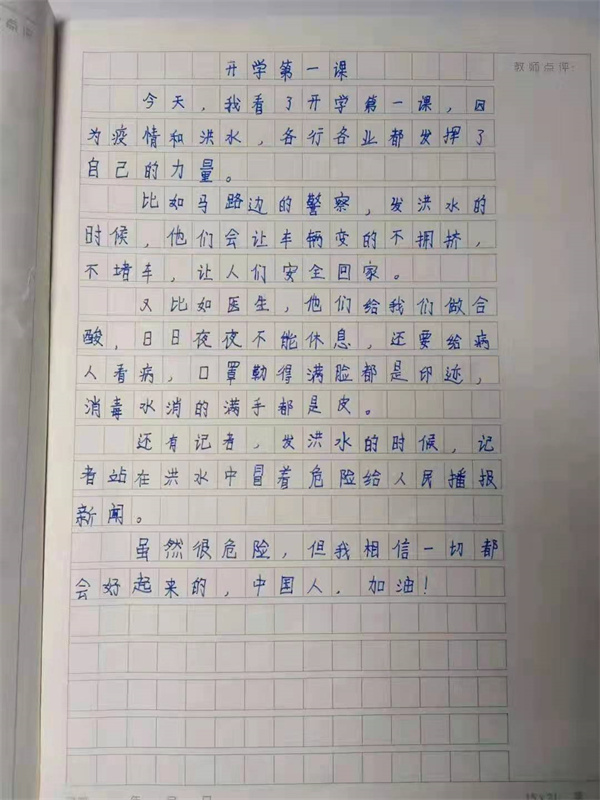 教师点评
开学第一课
今天，我看了开学第一课，因
为疫情和洪水，各行各业都发挥了
自己的力量。
比如马路边的警察，发洪水的
时候，他们会让车辆变的不拥挤，
不堵车，让人们安全回家。
又比如医生，他们给我们做合
酸，日日夜夜不能休息，还要给病
人看病，口罩勒得满脸都是印迹，
消毒水消的满手都是皮。
还有记者，发洪水的时候，记
者站在洪水中冒着危险给人民播报
新闻。
虽然很危险，但我相信一切都
会好起来的，中国人，加油！
年 月 日